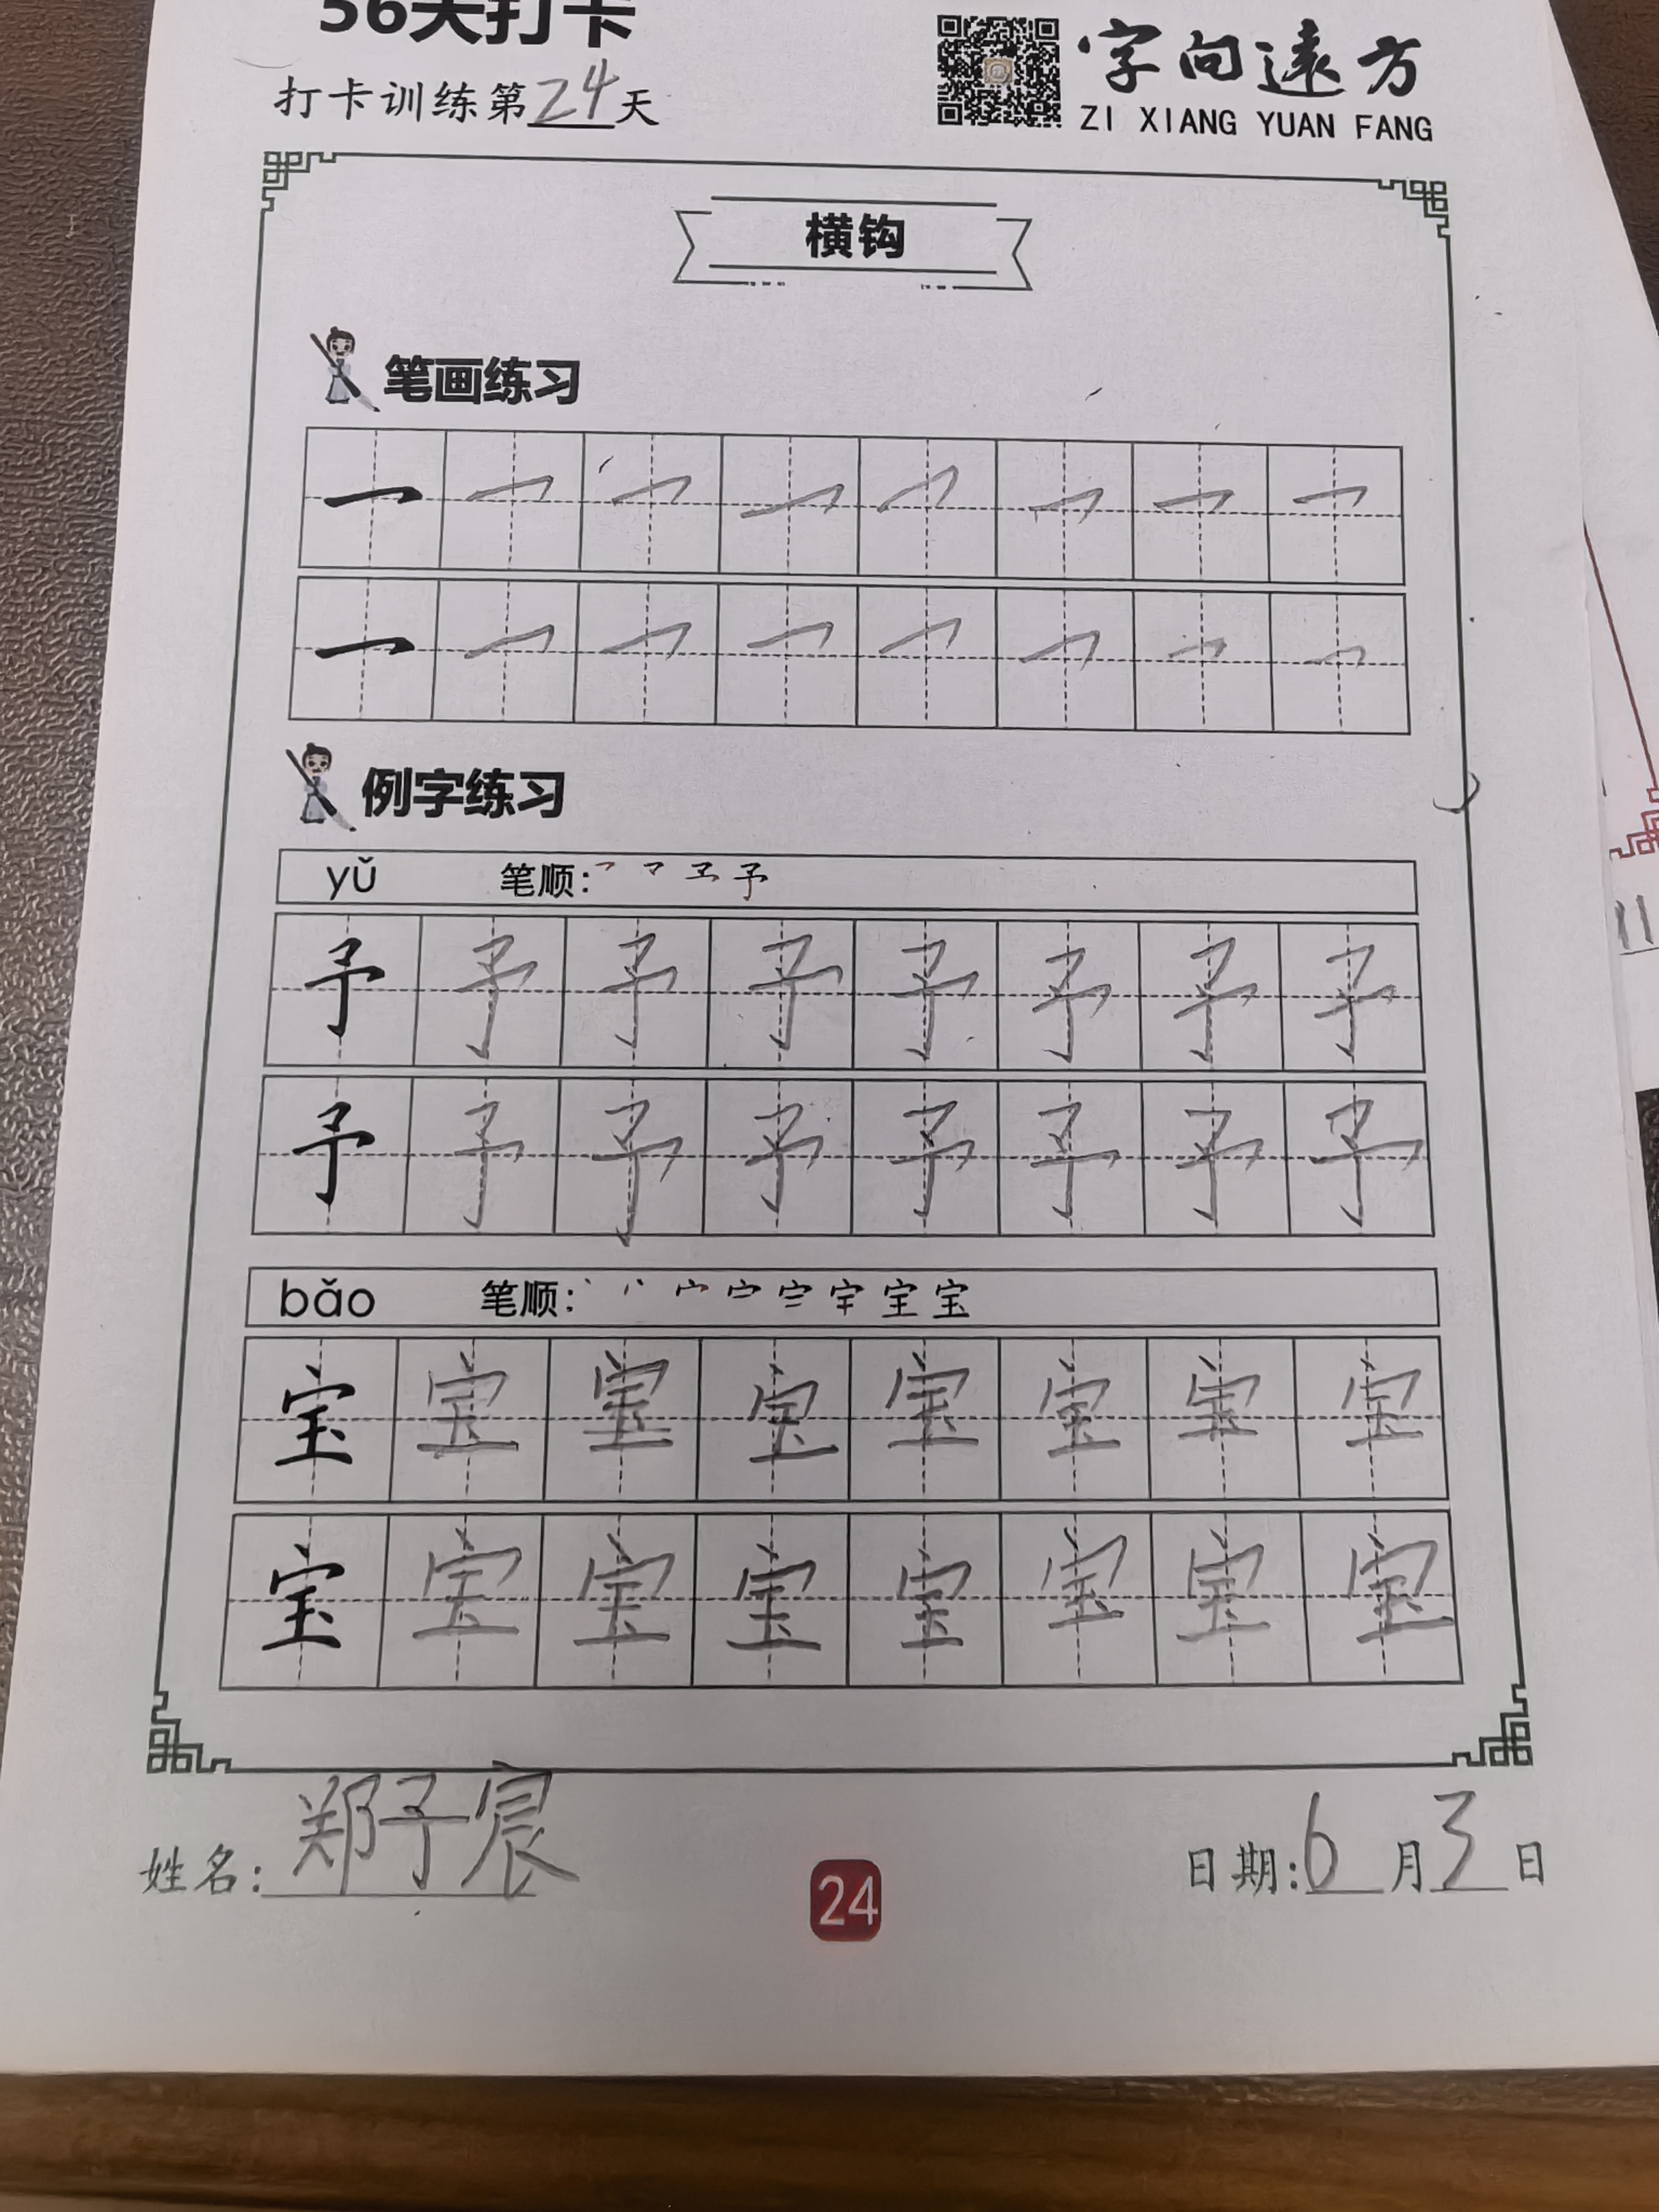 56天打卡
打卡训练第24天
字向遠方
ZI XIANG YUAN FANG
横钩
笔画练习
例字练习
yǔ 笔顺:
予 予 予 予 予 予 予 予
予 予 予 予 予 予 予 予
bǎo 笔顺:
宝 宝 宝 宝 宝 宝 宝 宝
宝 宝 宝 宝 宝 宝 宝 宝
姓名:郑予宸
24
日期:6月3日
11